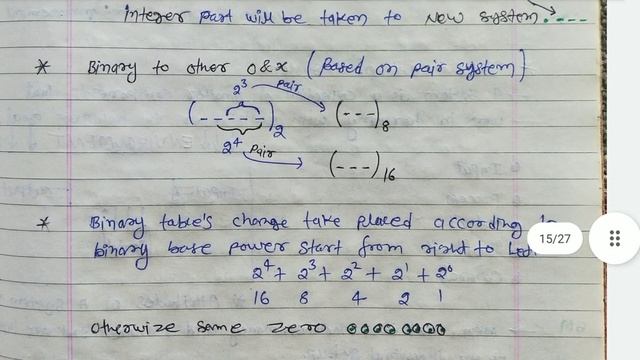 Integer part will be taken to New system.----
* Binary to other O & X (Based on pair system)
2³ pair
(------)2 (---)8
2⁴ pair (---)16
* Binary table's change take placed according to
binary base power start from right to
15/27
2⁴ + 2³ + 2² + 2¹ + 2⁰
16 8 4 2 1
otherwize same zero 0000 0000